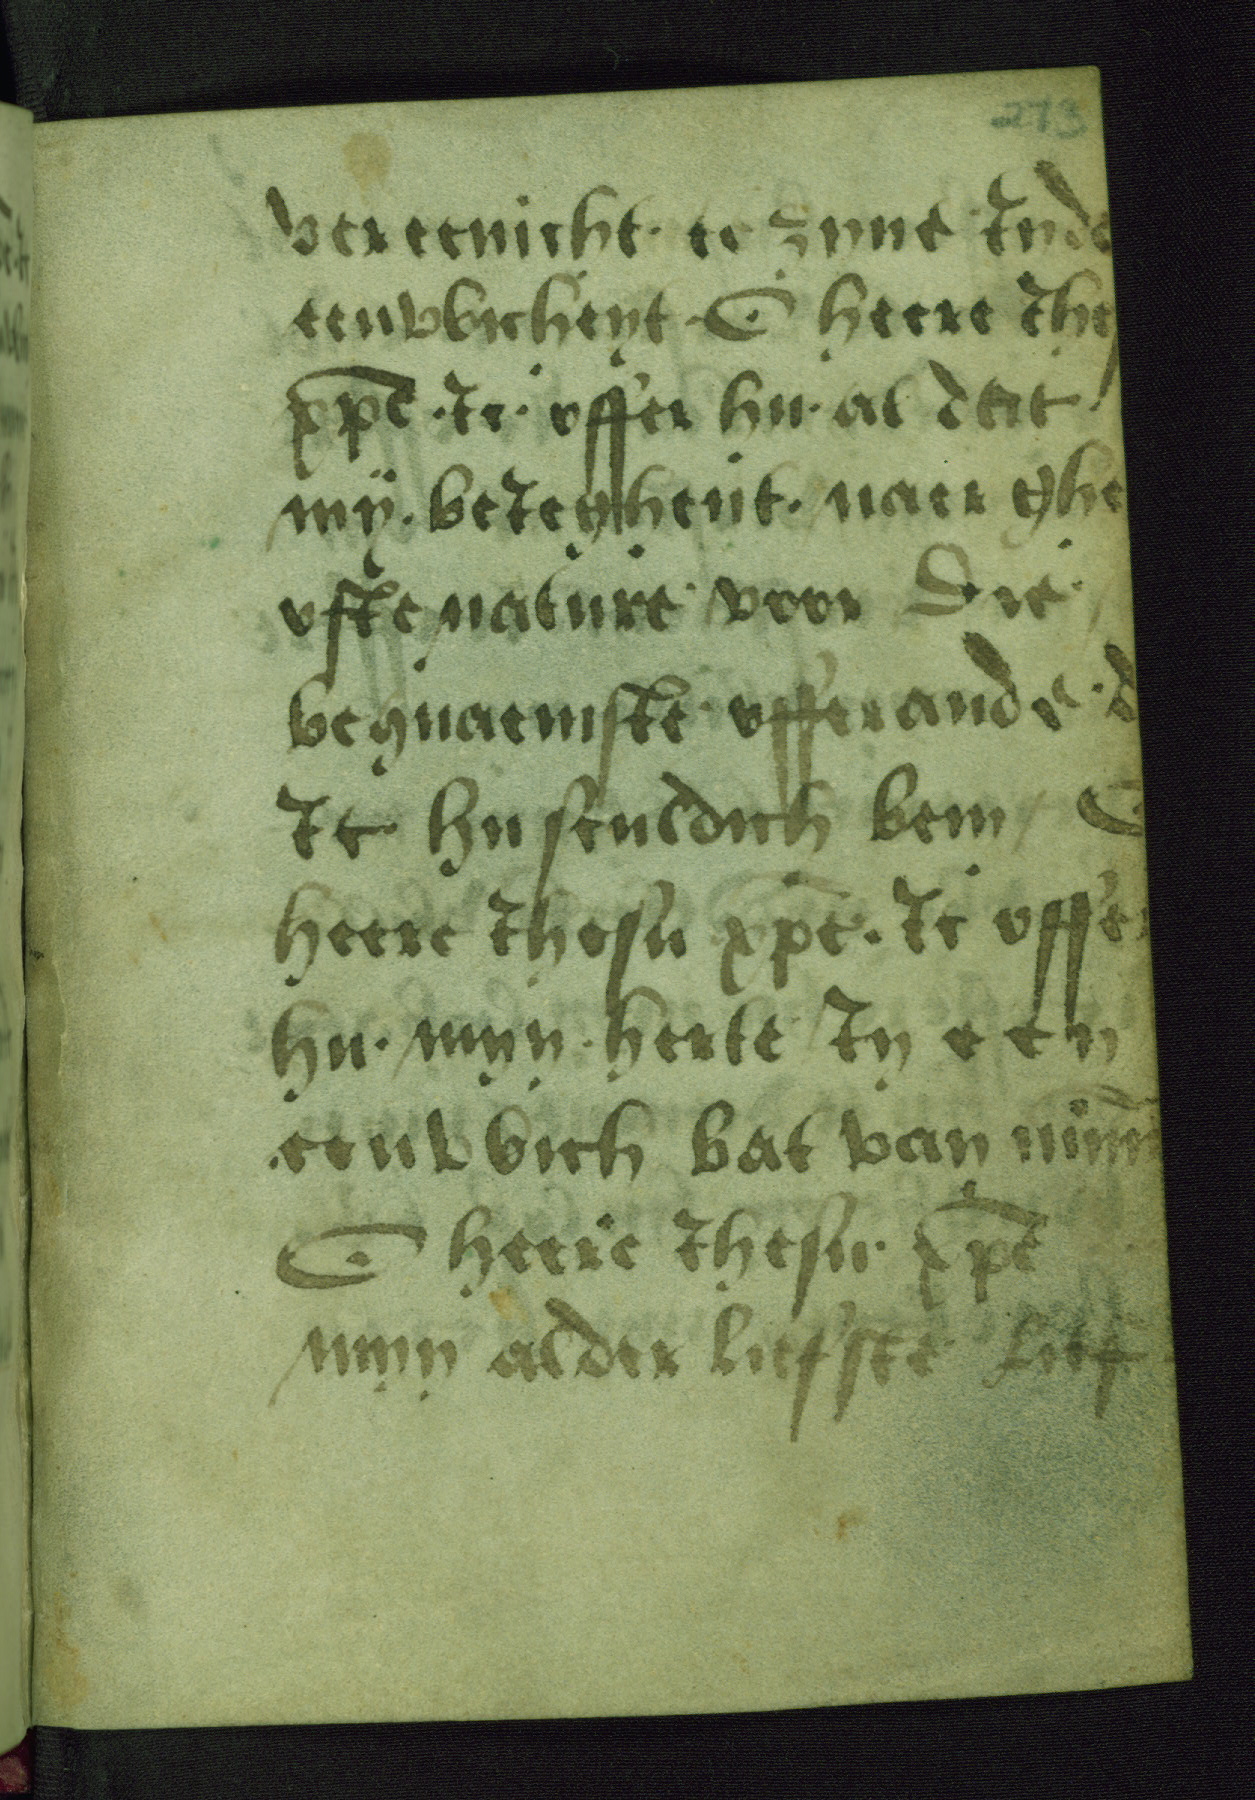 273
vereenicht · te zyne Inde
eeuwicheyt · O heere Ihe
xp̄e · Ic · offer hu · al dat
mÿ · beteghent · naer ghe
ofte nature voor Die
bequaemste offerande · d
Ic hu sculdich bem / O
heere Ihesu xp̄e · Ic offer
hu · myn · herte In een
eeuwich bat van
O heere Ihesu · xp̄e
myn alder liefste lief